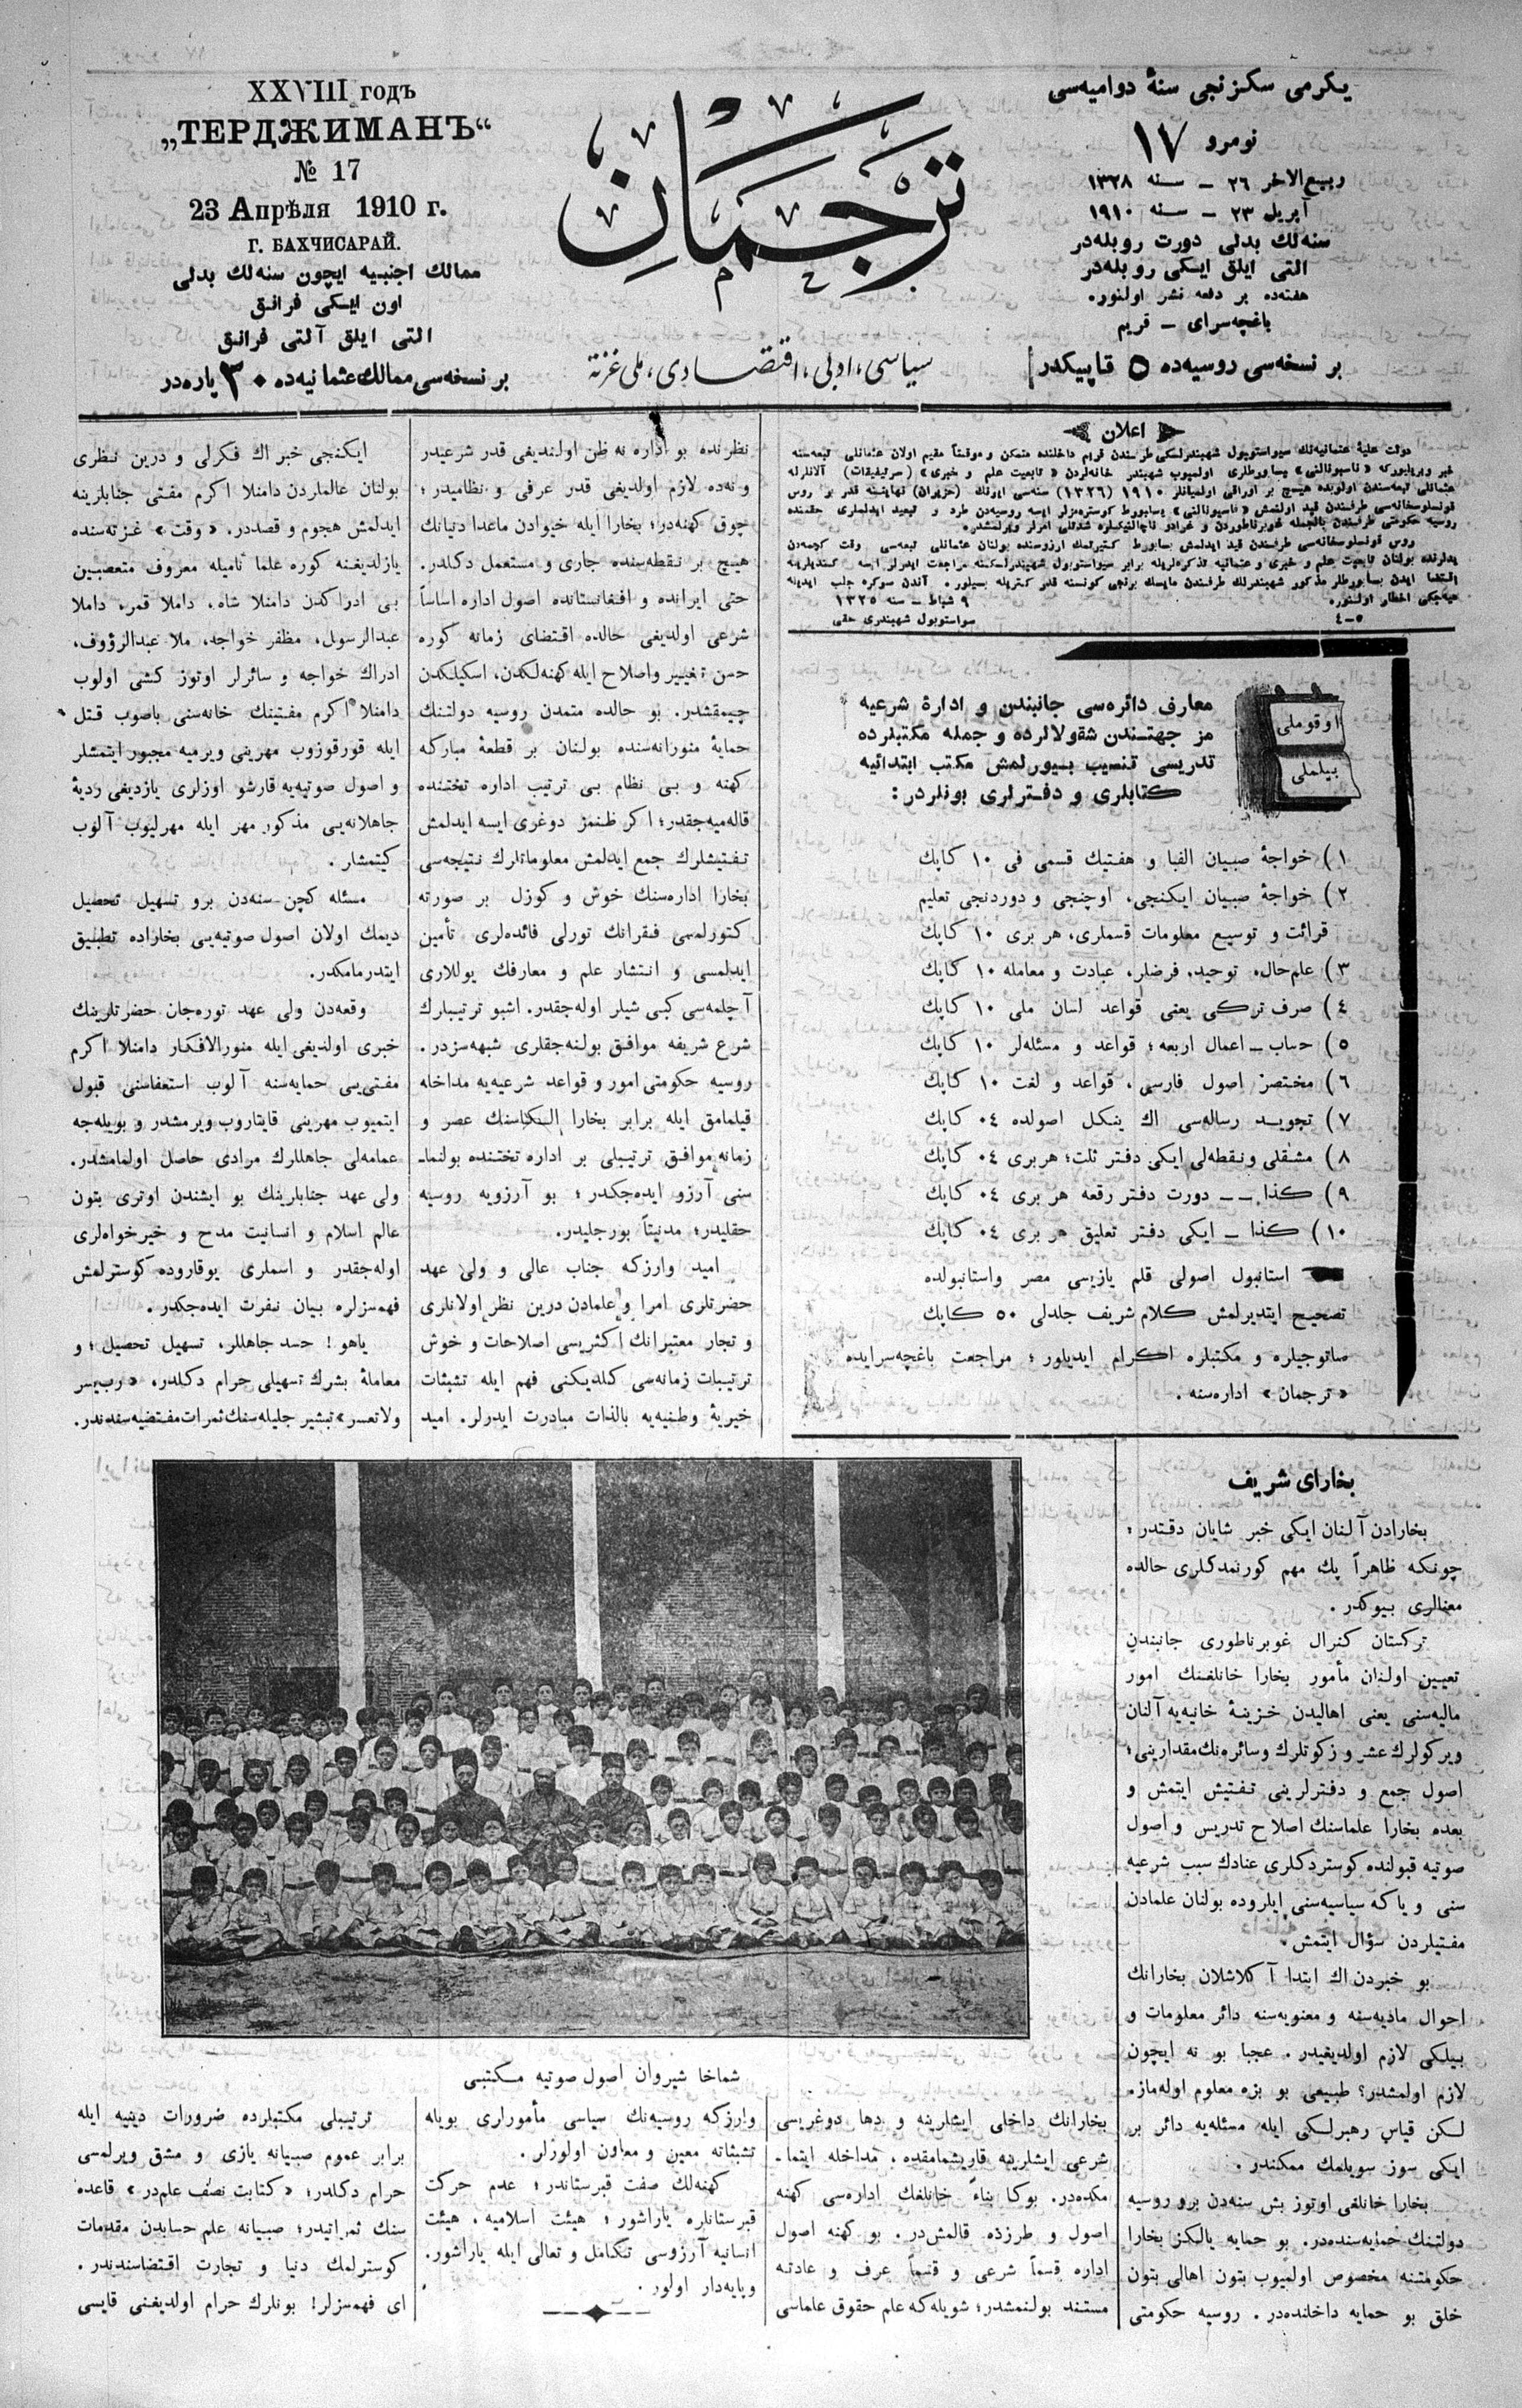 XXVIII годъ
„ТЕРДЖИМАНЪ“
№ 17
23 Апрѣля 1910 г.
г. БАХЧИСАРАЙ.
ممالك اجنبیه ایچون سنه‌لك بدلی
اون ایکی فرانق
التی ایلق آلتی فرانق
بر نسخه‌سی ممالك عثمانیه‌ده ۳۰ پاره‌در
ترجمان
سیاسی، ادبی، اقتصادی، ملی غزته
یکرمی سکزنجی سنهٔ دوامیه‌سی
نومرو ۱۷
ربیع‌الاخر ۲۶ — سنه ۱۳۲۸
آپریل ۲۳ — سنه ۱۹۱۰
سنه‌لك بدلی دورت روبله‌در
التی ایلق ایکی روبله‌در
هفته‌ده بر دفعه نشر اولنور.
باغچه‌سرای — قریم
بر نسخه‌سی روسیه‌ده ۵ قاپیکدر
اعلان
۹ شباط — سنه ۱۳۲۵
سواستوپول شهبندری حقی
۵—٤
اوقوملی
بیلملی
معارف دائره‌سی جانبندن و ادارهٔ شرعیه
مز جهتندن شقولالرده و جمله مکتبلرده
تدریسی تنصیب بیورلمش مکتب ابتدائیه
کتابلری و دفترلری بونلردر:
۱) خواجهٔ صبیان الفبا و هفتیك قسمی فی ۱۰ کاپك
۲) خواجهٔ صبیان ایکنجی، اوچنجی و دوردنجی تعلیم
قرائت و توسیع معلومات قسملری، هر بری ۱۰ کاپك
۳) علم‌حال، توحید، فرضلر، عبادت و معامله ۱۰ کاپك
٤) صرف ترکی یعنی قواعد لسان ملی ۱۰ کاپك
۵) حساب — اعمال اربعه؛ قواعد و مسئله‌لر ۱۰ کاپك
٦) مختصر اصول فارسی، قواعد و لغت ۱۰ کاپك
۷) تجوید رساله‌سی اك ینکل اصولده ٠٤ کاپك
۸) مشقلی و نقطه‌لی ایکی دفتر ثلث؛ هربری ٠٤ کاپك
۹) کذا — — دورت دفتر رقعه هر بری ٠٤ کاپك
۱۰) کذا — ایکی دفتر تعلیق هر بری ٠٤ کاپك
استانبول اصولی قلم یازیسی مصر واستانبولده
تصحیح ایتدیرلمش کلام شریف جلدلی ۵۰ کاپك
صاتوجیلره و مکتبلره اکرام ایدیلور؛ مراجعت باغچه‌سرایده
«ترجمان» اداره‌سنه.
بخارای شریف
بخارادن آلنان ایکی خبر شایان دقتدر؛
چونکه ظاهراً پك مهم کورنمدکلری حالده
معنالری بیوکدر.
ترکستان کنرال غوبرناطوری جانبندن
تعیین اولنان مأمور بخارا خانلغنك امور
مالیه‌سنی یعنی اهالیدن خزینهٔ خانیه‌یه آلنان
ویرکولرك عشر و زکوتلرك وسائره‌نك مقدارینی؛
اصول جمع و دفترلرینی تفتیش ایتمش و
بعده بخارا علماسنك اصلاح تدریس و اصول
صوتیه قبولنده کوستردکلری عنادك سبب شرعیه
سنی و یاکه سیاسیه‌سنی ایلروده بولنان علمادن
مفتیلردن سؤال ایتمش.
بو خبردن اك ابتدا آکلاشلان بخارانك
احوال مادیه‌سنه و معنویه‌سنه دائر معلومات و
بیلکی لازم اولدیغیدر. عجبا بو نه ایچون
لازم اولمشدر؟ طبیعی بو بزه معلوم اوله‌ماز.
لکن قیاس رهبرلکی ایله مسئله‌یه دائر بر
ایکی سوز سویلمك ممکندر.
بخارا خانلغی اوتوز بش سنه‌دن برو روسیه
دولتنك حمایه‌سنده‌در. بو حمایه یالکز بخارا
حکومتنه مخصوص اولمیوب بتون اهالی بتون
خلق بو حمایه داخلنده‌در. روسیه حکومتی
بخارانك داخلی ایشلرینه و دها دوغریسی
شرعی ایشلرینه قاریشمامقده، مداخله ایتما-
مکده‌در. بوکا بناءً خانلغك اداره‌سی کهنه
اصول و طرزده قالمش‌در. بو کهنه اصول
اداره قسماً شرعی و قسماً عرف و عادته
مستند بولنمشدر؛ شویله‌که علم حقوق علماسی
نظرنده بو اداره نه ظن اولندیغی قدر شرعیدر
و نه‌ده لازم اولدیغی قدر عرفی و نظامیدر؛
چوق کهنه‌در؛ بخارا ایله خیوادن ماعدا دنیانك
هیچ بر نقطه‌سنده جاری و مستعمل دکلدر.
حتی ایرانده و افغانستانده اصول اداره اساساً
شرعی اولدیغی حالده اقتضای زمانه کوره
حسن تغییر و اصلاح ایله کهنه‌لکدن، اسکیلکدن
چیمقشدر. بو حالده متمدن روسیه دولتنك
حمایهٔ منورانه‌سنده بولنان بر قطعهٔ مبارکه
کهنه و بی نظام بی ترتیب اداره تختنده
قاله‌میه‌جقدر؛ اکر ظنمز دوغری ایسه ایدلمش
تفتیشلرك جمع ایدلمش معلوماتلرك نتیجه‌سی
بخارا اداره‌سنك خوش و کوزل بر صورته
کتورلمسی فقرانك تورلی فائده‌لری تأمین
ایدلمسی و انتشار علم و معارفك یوللاری
آچلمه‌سی کبی شیلر اوله‌جقدر. اشبو ترتیبارك
شرع شریفه موافق بولنه‌جقلری شبهه‌سزدر.
روسیه حکومتی امور و قواعد شرعیه‌یه مداخله
قیلمامق ایله برابر بخارا الکاسنك عصر و
زمانه موافق ترتیبلی بر اداره تختنده بولنما-
سنی آرزو ایده‌جکدر؛ بو آرزویه روسیه
حقلیدر؛ مدنیتاً بورجلیدر.
امید وارزکه جناب عالی و ولی عهد
حضرتلری امرا و علمادن درین نظر اولانلری
و تجار معتبرانك اکثریسی اصلاحات و خوش
ترتیبات زمانه‌سی کلدیکنی فهم ایله تشبثات
خیریهٔ وطنیه‌یه بالذات مبادرت ایدرلر. امید
وارزکه روسیه‌نك سیاسی مأمورلری بویله
تشبثاته معین و معاون اولورلر.
کهنه‌لك صفت قبرستاندر؛ عدم حرکت
قبرستانلره یاراشور؛ هیئت اسلامیه، هیئت
انسانیه آرزوسی تکامل و تعالی ایله یاراشور.
وپایه‌دار اولور.
ایکنجی خبر اك فکرلی و درین نظری
بولنان عالماردن دامنلا اکرم مفتی جنابلرینه
ایدلمش هجوم و قصددر. «وقت» غزته‌سنده
یازلدیغنه کوره علما نامیله معروف متعصبین
بی ادراکدن دامنلا شاه، داملا قمر، داملا
عبدالرسول، مظفر خواجه، ملا عبدالرؤوف،
ادراك خواجه و سائرلر اوتوز کشی اولوب
دامنلا اکرم مفتینك خانه‌سنی باصوب قتل
ایله قورقوزوب مهرینی ویرمیه مجبور ایتمشلر
و اصول صوتیه‌یه قارشو اوزلری یازدیغی ردیهٔ
جاهلانه‌یی مذکور مهر ایله مهرلیوب آلوب
کیتمشار.
مسئله کچن سنه‌دن برو تسهیل تحصیل
دیمك اولان اصول صوتیه‌یی بخاراده تطبیق
ایتدرمامکدر.
وقعه‌دن ولی عهد توره‌جان حضرتلرینك
خبری اولدیغی ایله منورالافکار دامنلا اکرم
مفتی‌یی حمایه‌سنه آلوب استعفاسنی قبول
ایتمیوب مهرینی قایتاروب ویرمشدر و بویله‌جه
عمامه‌لی جاهللرك مرادی حاصل اولمامشدر.
ولی عهد جنابلرینك بو ایشندن اوتری بتون
عالم اسلام و انسانیت مدح و خیرخواه‌لری
اوله‌جقدر و اسملری یوقاروده کوسترلمش
فهمسزلره بیان نفرت ایده‌جکدر.
یاهو! حسد جاهللر، تسهیل تحصیل؛ و
معاملهٔ بشرك تسهیلی حرام دکلدر، «رب یسر
ولاتعسر» تبشیر جلیله‌سنك ثمرات مقتضیه‌سندندر.
ترتیبلی مکتبلرده ضرورات دینیه ایله
برابر عموم صبیانه یازی و مشق ویرلمسی
حرام دکلدر؛ «کتابت نصف علم‌در» قاعده
سنك ثمراتیدر؛ صبیانه علم حسابدن مقدمات
کوسترلمك دنیا و تجارت اقتضاسندندر.
ای فهمسزلر! بونلرك حرام اولدیغنی قایسی
شماخا شیروان اصول صوتیه مکتبی